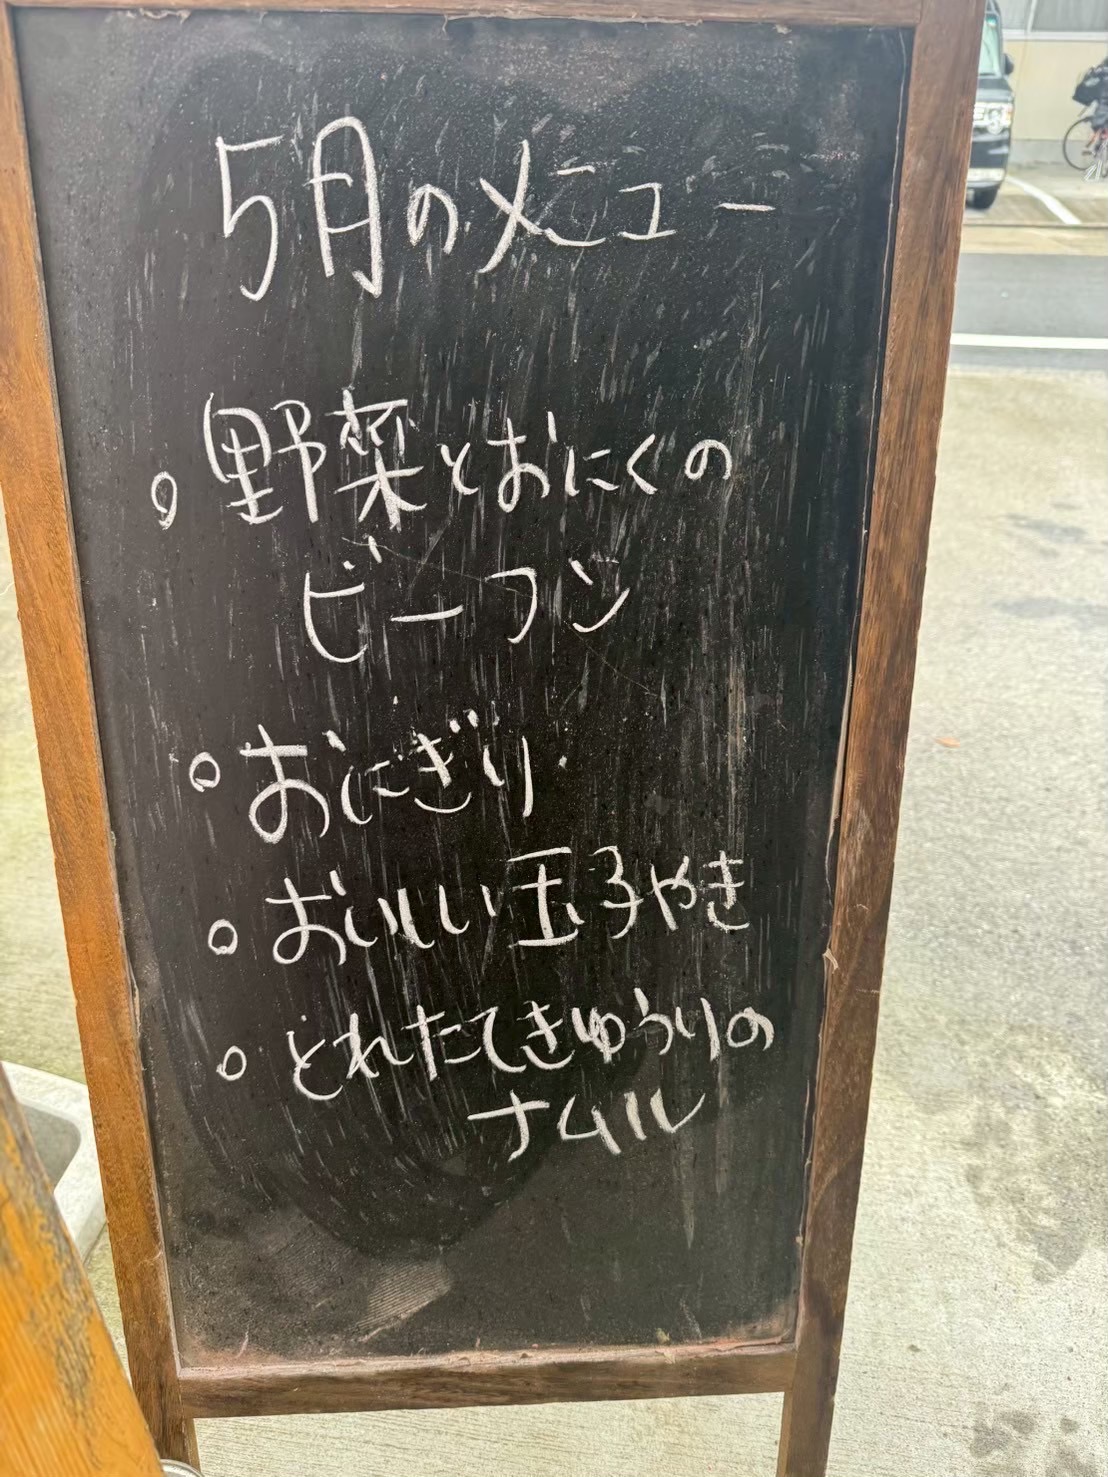 5月のメニュー
。野菜とおにくの
ビーフン
。おにぎり
。おいしい玉子やき
。とれたてきゅうりの
ナムル